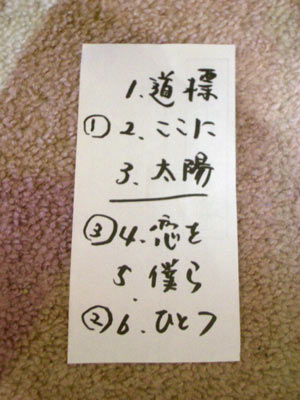 1. 道標
① 2. ここに
3. 太陽
③ 4. 恋を
5. 僕ら
② 6. ひとつ